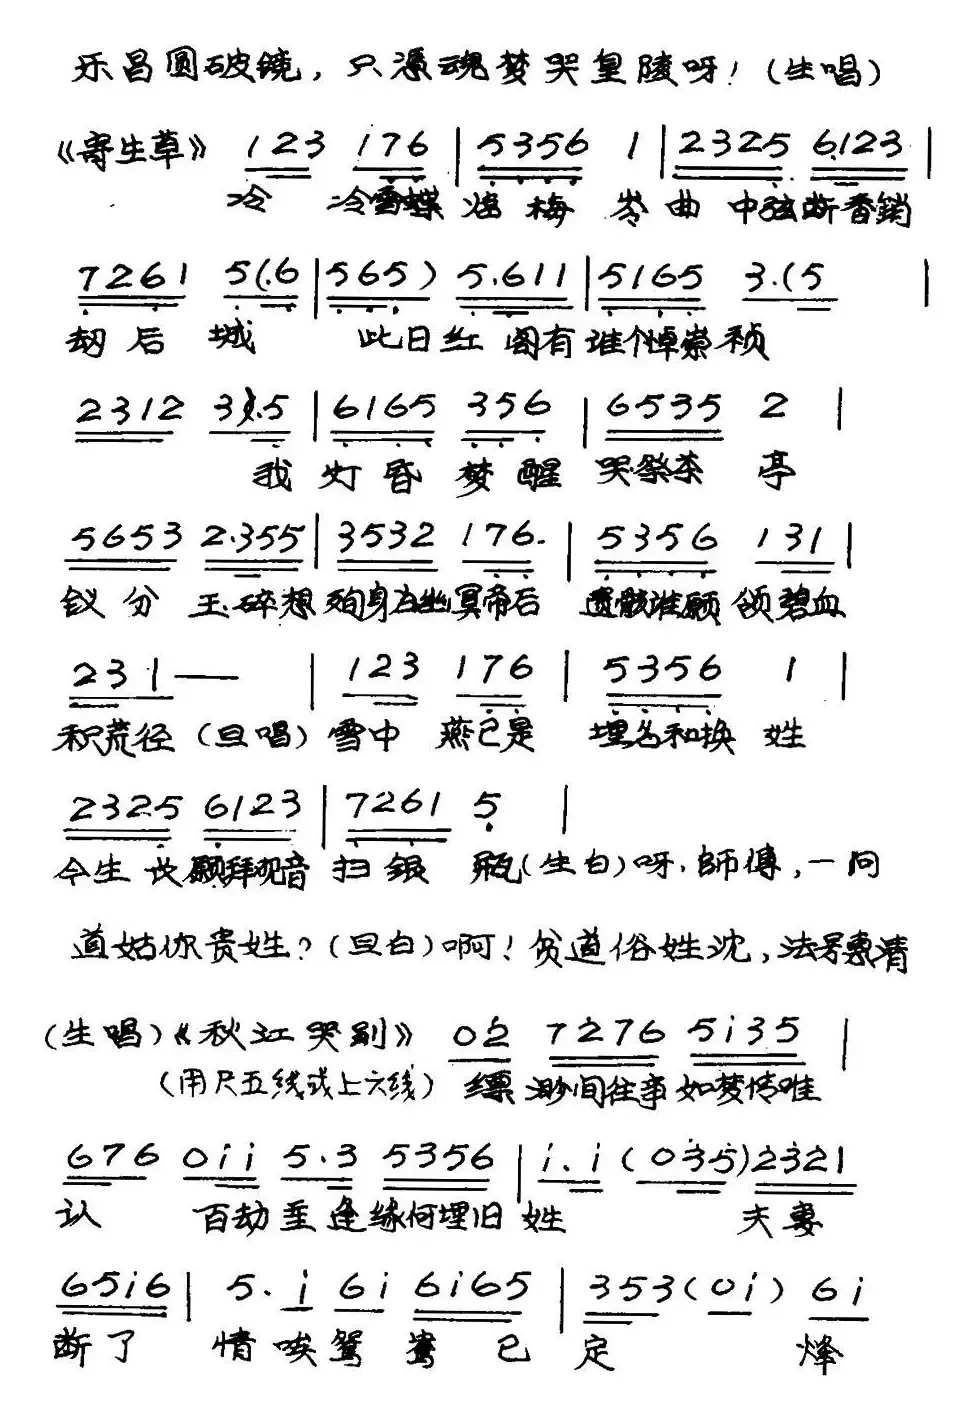 乐昌圆破镜，只凭魂梦哭皇陵呀！（生唱）
《寄生草》 123 176 | 5356 1 | 2325 6123 |
冷 冷雪蝶 梅 岑曲 中弦断香销
7261 5(.6 | 565) 5.611 | 5165 3.(5 |
劫后 城 此日红 阁有谁个悼崇祯
2312 3).5 | 6165 356 | 6535 2 |
我 灯昏 梦醒 哭祭茶 亭
5653 2.355 | 3532 176. | 5356 131 |
钗分 玉碎想殉身为幽冥帝后 遗骸谁愿领碧血
23 1— | 123 176 | 5356 1 |
积荒径（旦唱）雪中 燕已是 埋名和换 姓
2325 6123 | 7261 5 |
今生 长愿拜观音 扫银 瓶（生白）呀．師傅，一问
道姑你贵姓？（旦白）啊！贫道俗姓沈，法号慧清
（生唱）《秋江哭别》 02 7276 5i35 |
（用尺五线或上六线） 缥 渺间往事如梦情难
676 0ii 5.3 5356 | i.i (035) 2321
认 百劫重逢缘何埋旧 姓 夫妻
65i6 | 5.i 6i 6i65 | 353(0i) 6i
断了 情唉鸳 鸯 已 定 烽